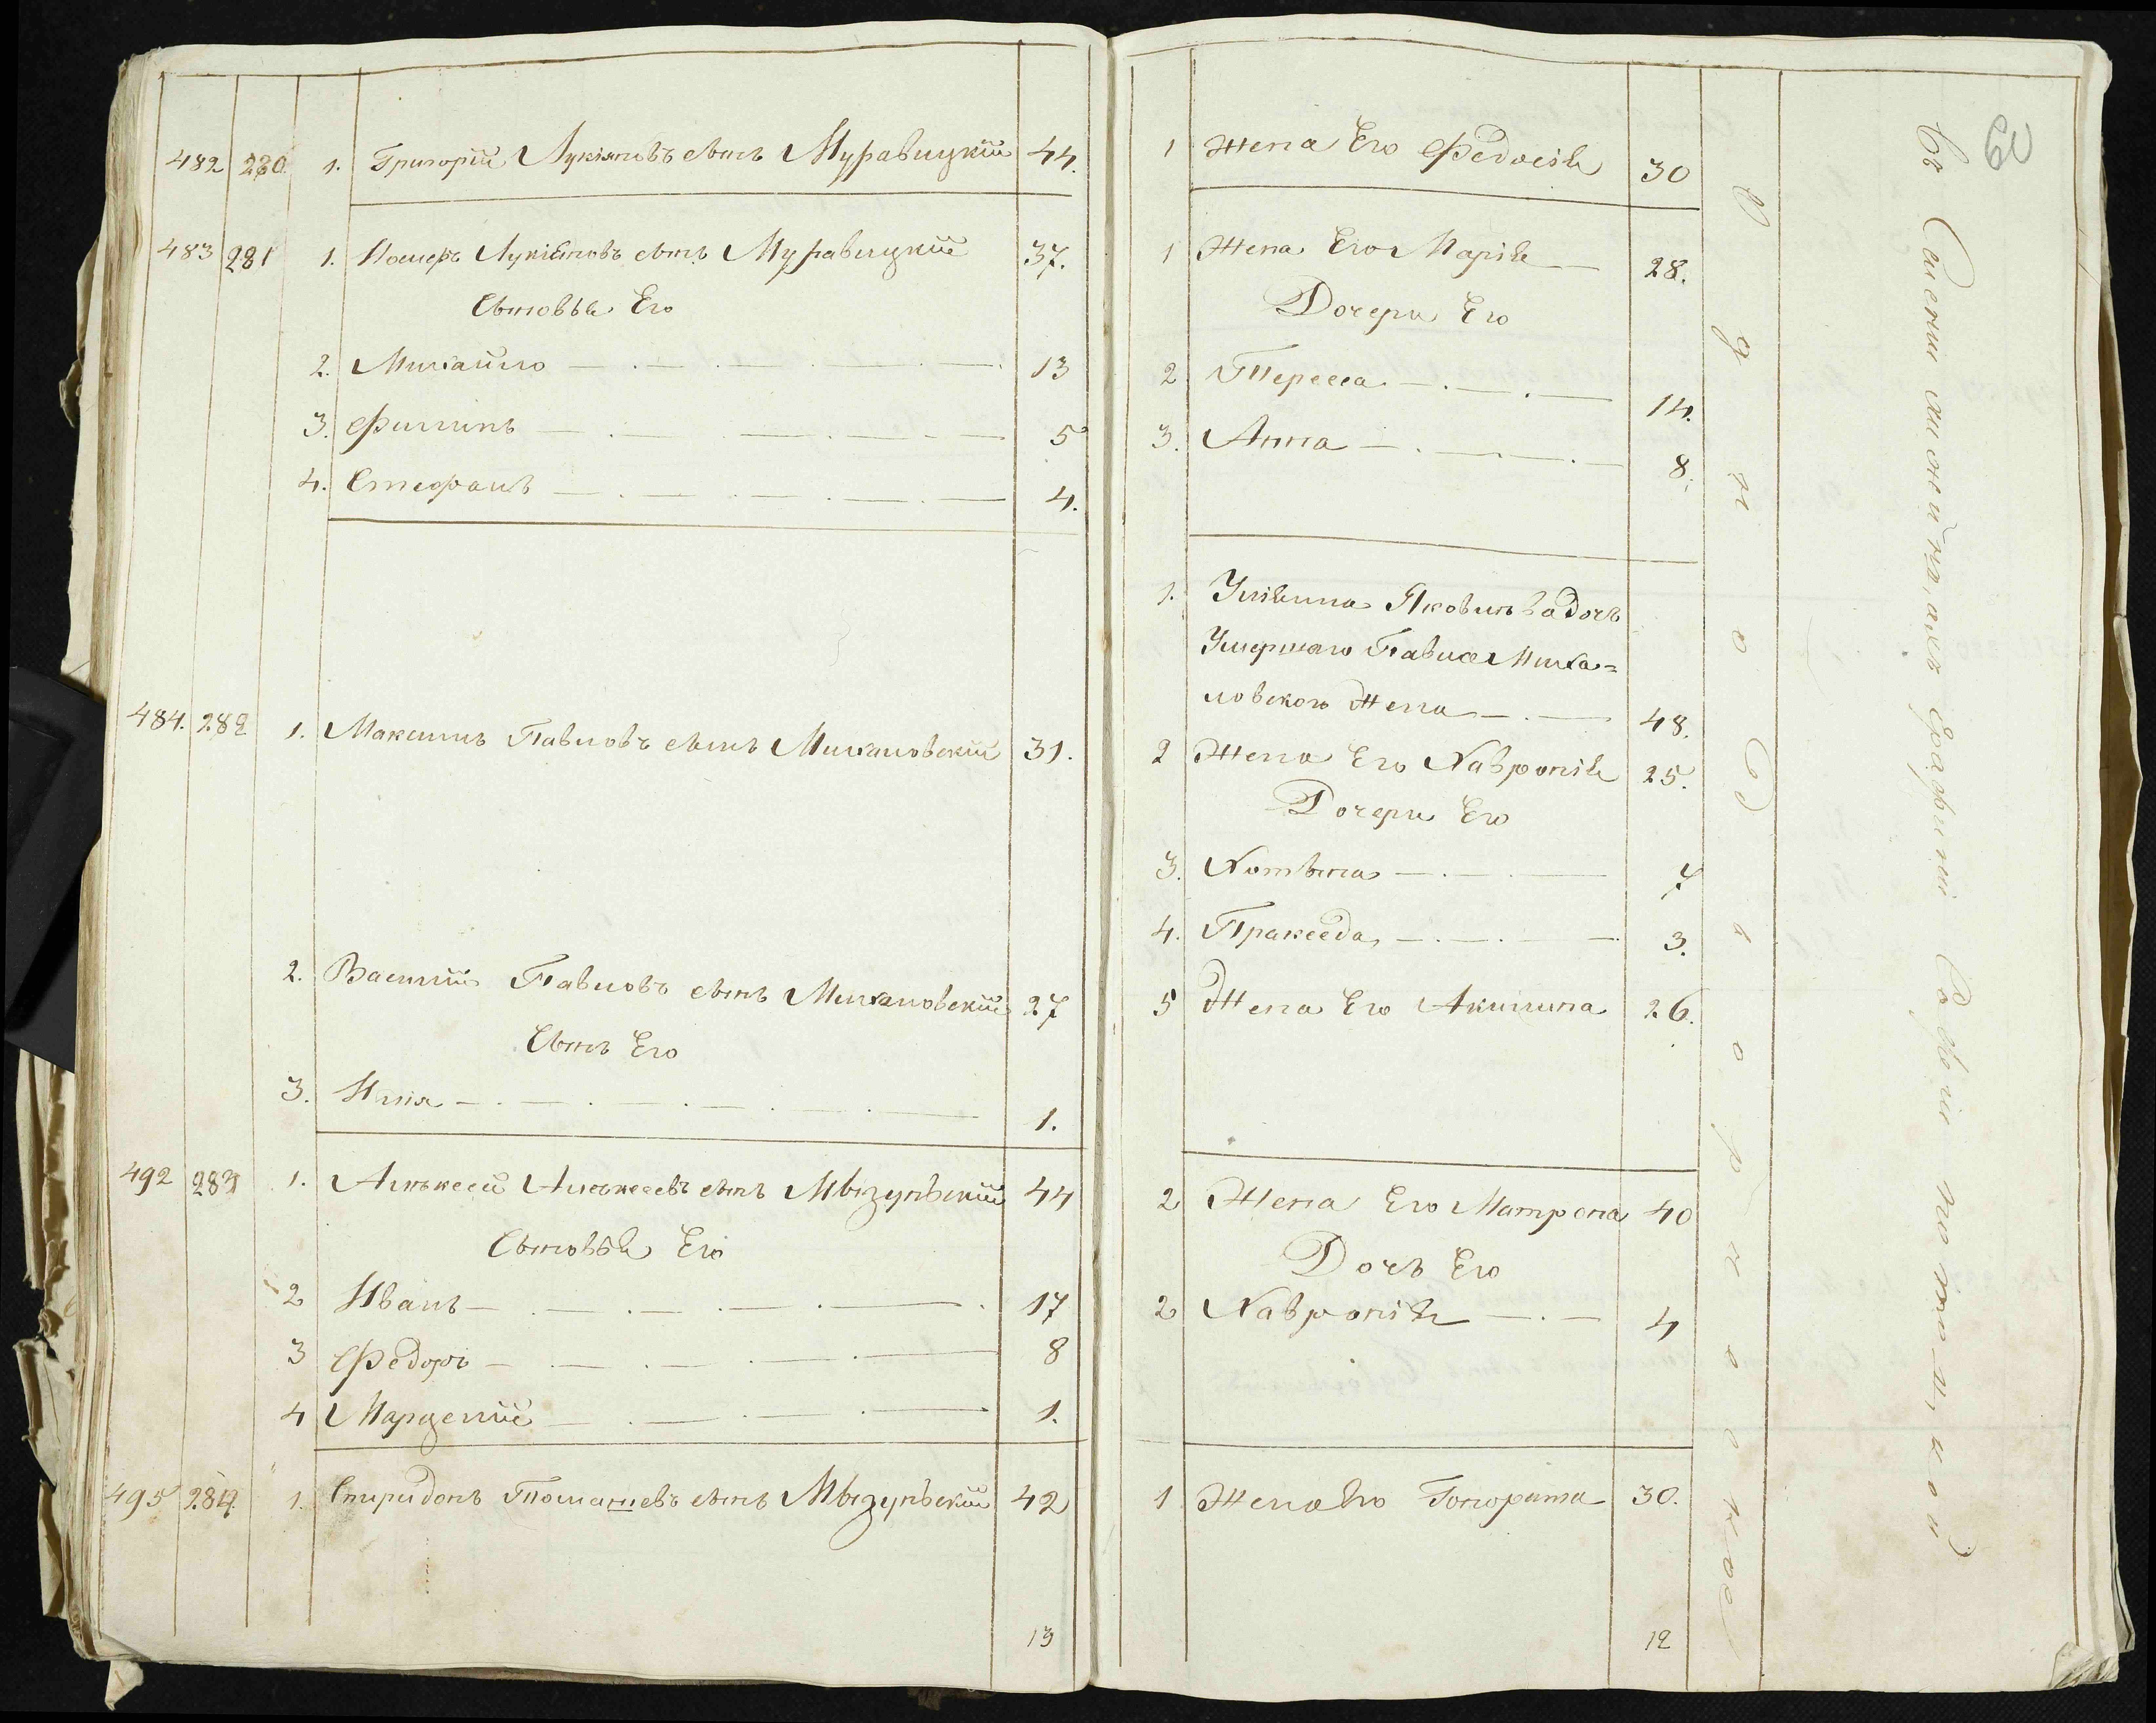 482 280. 1. Григорій Лукіяновъ сынъ Муравицкій 44.
483 281 1. Іосифъ Лукіяновъ сынъ Муравицкій 37.
Сыновья Его
2. Михайло 13
3. Филипъ 5
4. Стефанъ 4.
484. 282 1. Максимъ Павловъ сынъ Михаловскій 31.
2. Василій Павловъ сынъ Михаловскій 27
Сынъ Его
3. Илія 1.
492 283 1. Алекѣей Алекѣеевъ сынъ Мызунскій 44
Сыновья Его
2 Иванъ 17
3 Федоръ 8
4 Марцелій 1.
495 284. 1. Спиридонъ Томашевъ сынъ Мызунскій 42
13
60
1 Жена Его Федосія 30
1 Жена Его Марія 28.
Дочери Его
2 Тересса 14.
3. Анна 8.
1. Уліянна Яковлева дочь
Умершаго Павла Миха=
ловского Жена 48.
2 Жена Его Хавронія 25.
Дочери Его
3. Хотына 7
4. Пракседа 3.
5 Жена Его Акилина 26.
2 Жена Его Матрона 40
Дочь Его
2 Хавронія 4
1 Жена Его 30.
12
Однодворческое